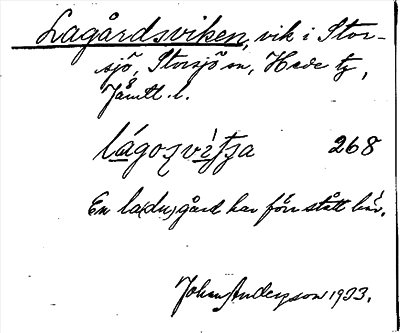 Lagårdsviken, vik i Stor-
sjö, Storsjö sn, Hede tg,
Jämtl. l.
lágoʒvìtʃa 268
En la(du)gård har förr stått här.
Johan Anderson 1933.